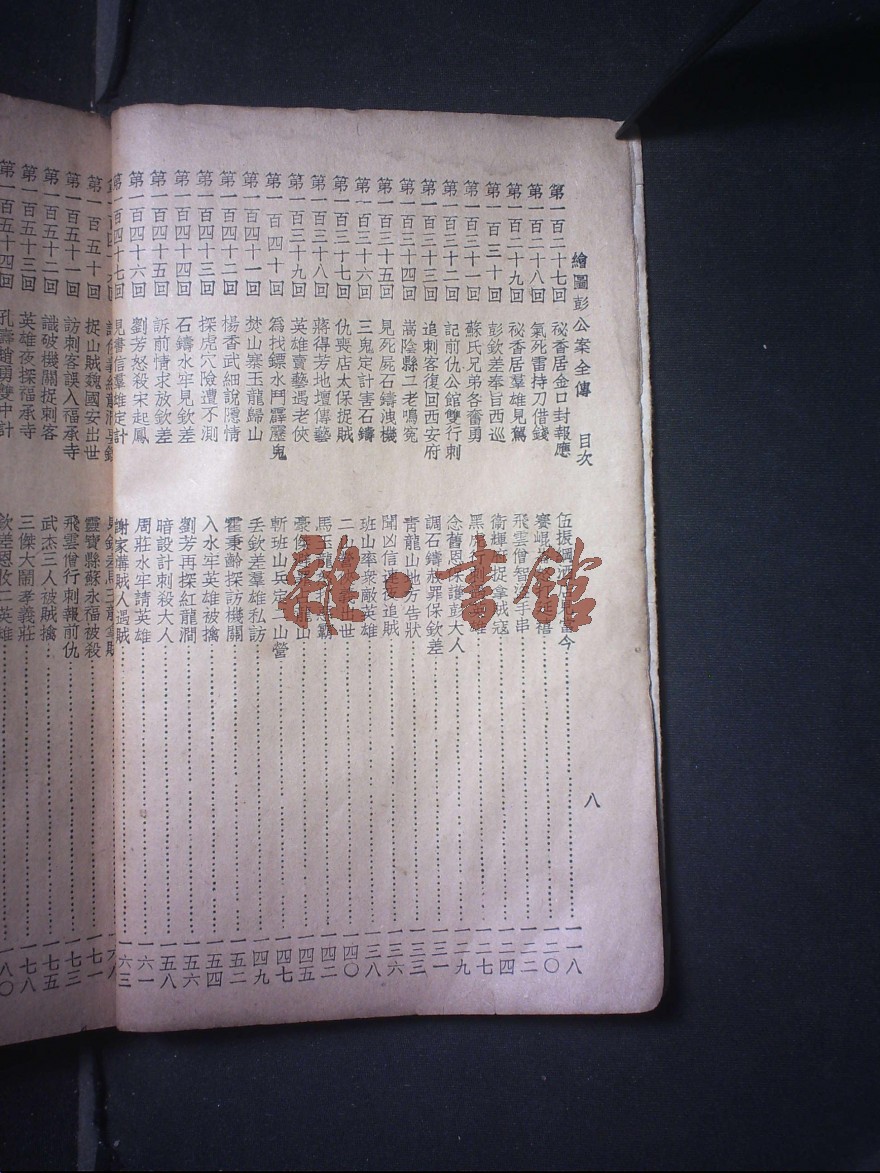 繪圖彭公案全傳 目次 八
第一百二十七回 秘香居金口封報應 伍振綱 當今 一一八
第一百二十八回 氣死雷持刀借錢 賽崑 一二〇
第一百二十九回 秘香居羣雄見駕 飛雲僧智 手串 一二二
第一百三十回 彭欽差奉旨西巡 衛輝府捉拿 寇 一二四
第一百三十一回 蘇氏兄弟各奮勇 黑 雄 一二七
第一百三十二回 記前仇公館雙行刺 念舊恩保護彭大人 一二九
第一百三十三回 追刺客復回西安府 調石鑄赦罪保欽差 一三一
第一百三十四回 嵩陰縣二老鳴寃 青龍山地方告狀 一三三
第一百三十五回 見死屍石鑄洩機 聞凶信 追賊 一三六
第一百三十六回 三鬼定計害石鑄 班山率衆敵英雄 一三八
第一百三十七回 仇喪店太保捉賊 二 出世 一四〇
第一百三十八回 蔣得芳地壇傳藝 馬玉龍 霸 一四二
第一百三十九回 英雄賣藝遇老俠 豪傑 龍山 一四五
第一百四十回 爲找鏢水鬥霹靂鬼 斬班山兵定二山營 一四七
第一百四十一回 焚山寨玉龍歸山 丢欽差羣雄私訪 一四九
第一百四十二回 楊香武細說隱情 霍秉齡探訪機關 一五二
第一百四十三回 探虎穴險遭不測 入水牢英雄被擒 一五四
第一百四十四回 石鑄水牢見欽差 劉芳再探紅龍澗 一五六
第一百四十五回 訴前情求放欽差 暗設計刺殺大人 一五八
第一百四十六回 劉芳怒殺宋起鳳 周莊水牢請英雄 一六一
第一百四十七回 見書信羣雄定計 謝家溝賊人遇賊 一六三
第一百五十回 捉山賊魏國安出世 靈寶縣蘇永福被殺 一七一
第一百五十一回 訪刺客誤入福承寺 飛雲僧行刺報前仇 一七三
第一百五十二回 識破機關捉刺客 武杰三人被賊擒 一七五
第一百五十三回 英雄夜探福承寺 三傑大鬧孝義莊 一七八
第一百五十四回 孔壽趙勇雙中計 欽差恩收二英雄 一八〇
雜·書館